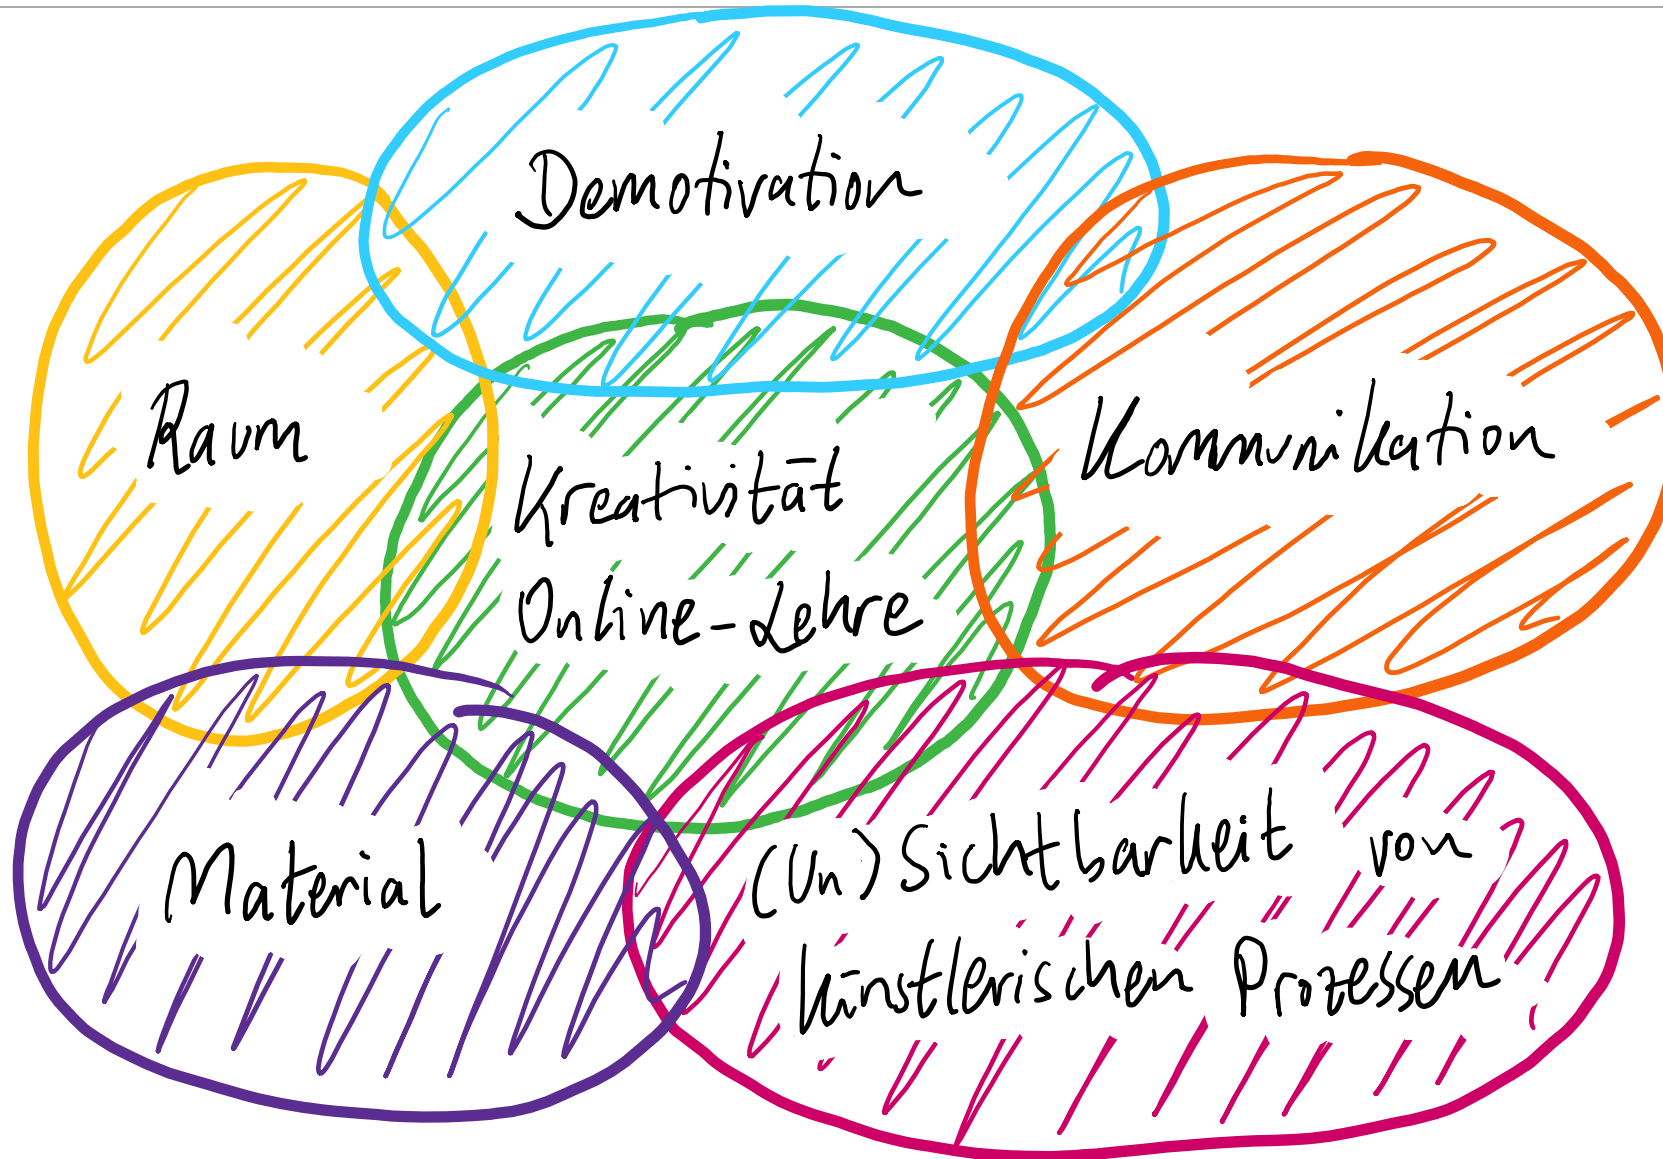 Demotivation
Raum
Kreativität
Online-Lehre
Kommunikation
Material
(Un)Sichtbarkeit von
künstlerischen Prozessen